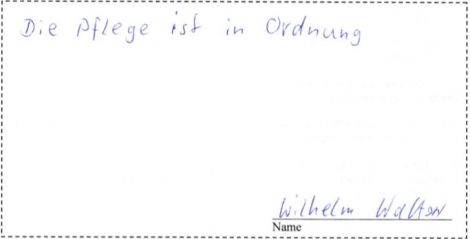 Die Pflege ist in Ordnung
Wilhelm Walter
Name